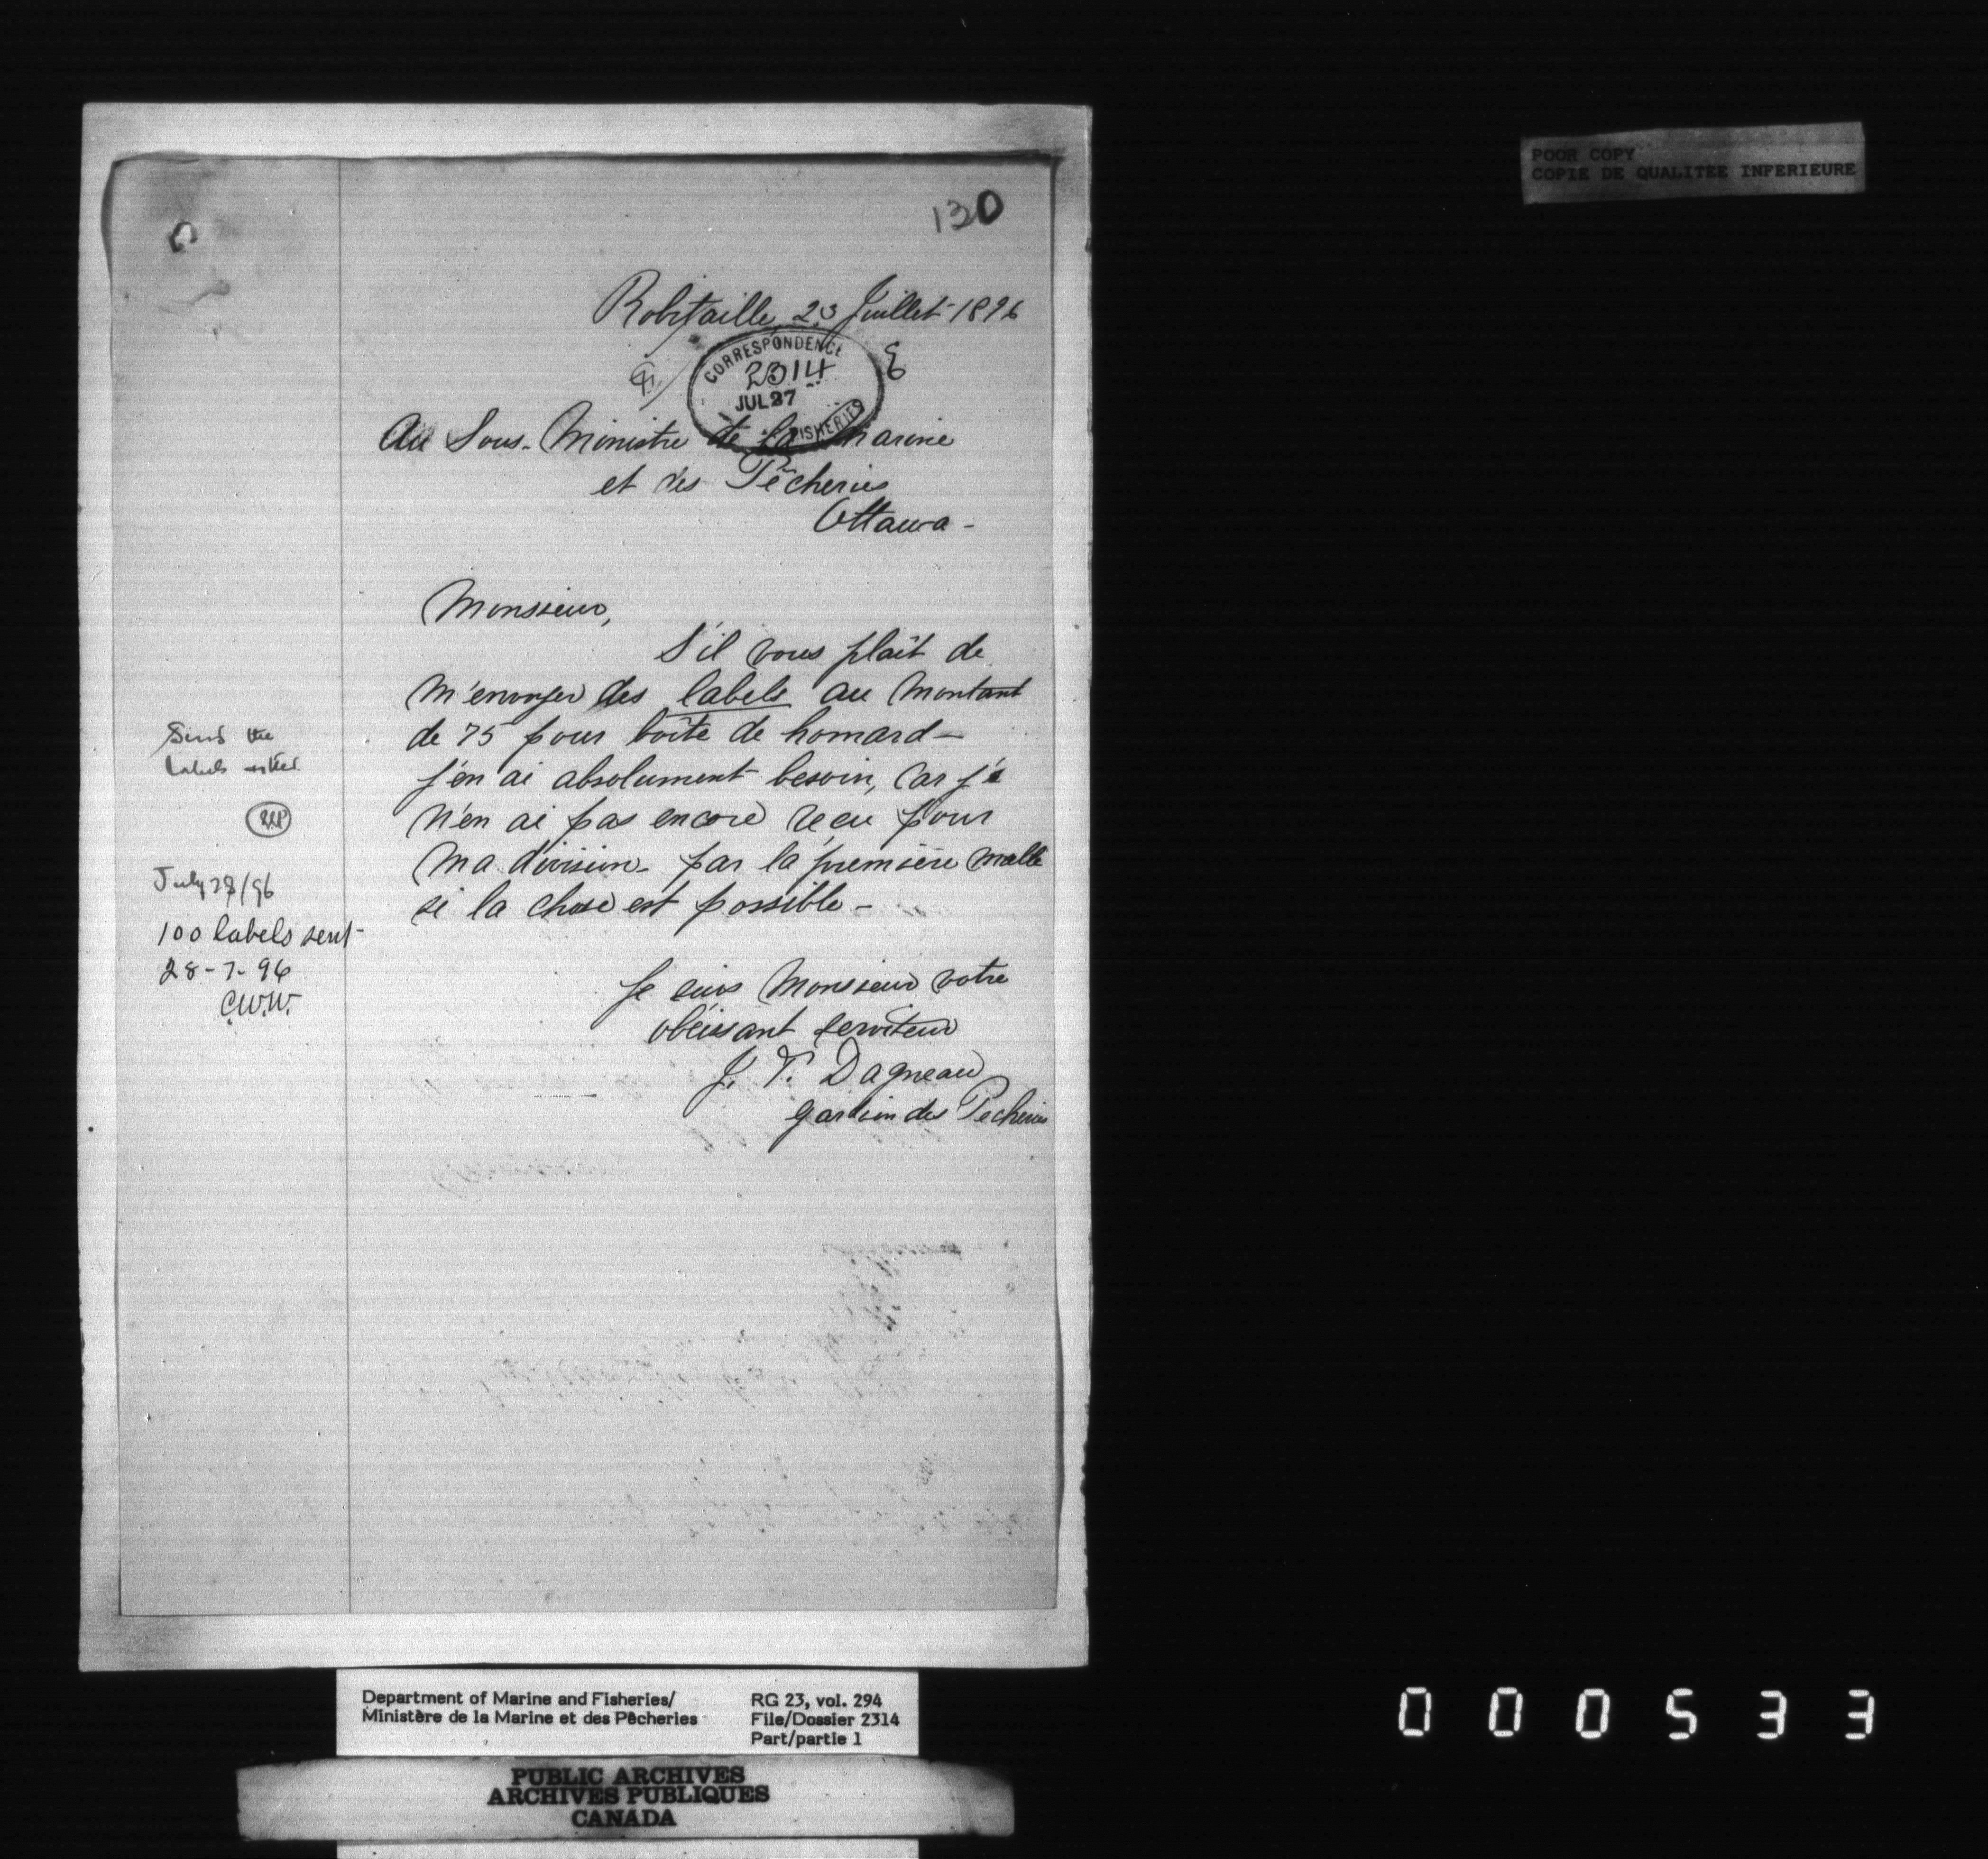 POOR COPY
COPIE DE QUALITEE INFERIEURE
130
Robitaille 23 Juillet 1896
CORRESPONDENCE
2314
JUL 27
FISHERIES
Au Sous-Ministre de la Marine
et des Pêcheries
Ottawa -
Monsieur,
S'il vous plaît de
m'envoyer des labels au montant
de 75 pour boîte de homard -
j'en ai absolument besoin, car je
n'en ai pas encore reçu pour
ma division - par la première malle
si la chose est possible -
Je suis Monsieur votre
obéissant serviteur
J. T. Dagneau
gardien des Pecheries
Send the
labels
July 28/96
100 labels sent
28-7-96
C.W.W.
Department of Marine and Fisheries/
Ministère de la Marine et des Pêcheries
RG 23, vol. 294
File/Dossier 2314
Part/partie 1
PUBLIC ARCHIVES
ARCHIVES PUBLIQUES
CANADA
000533